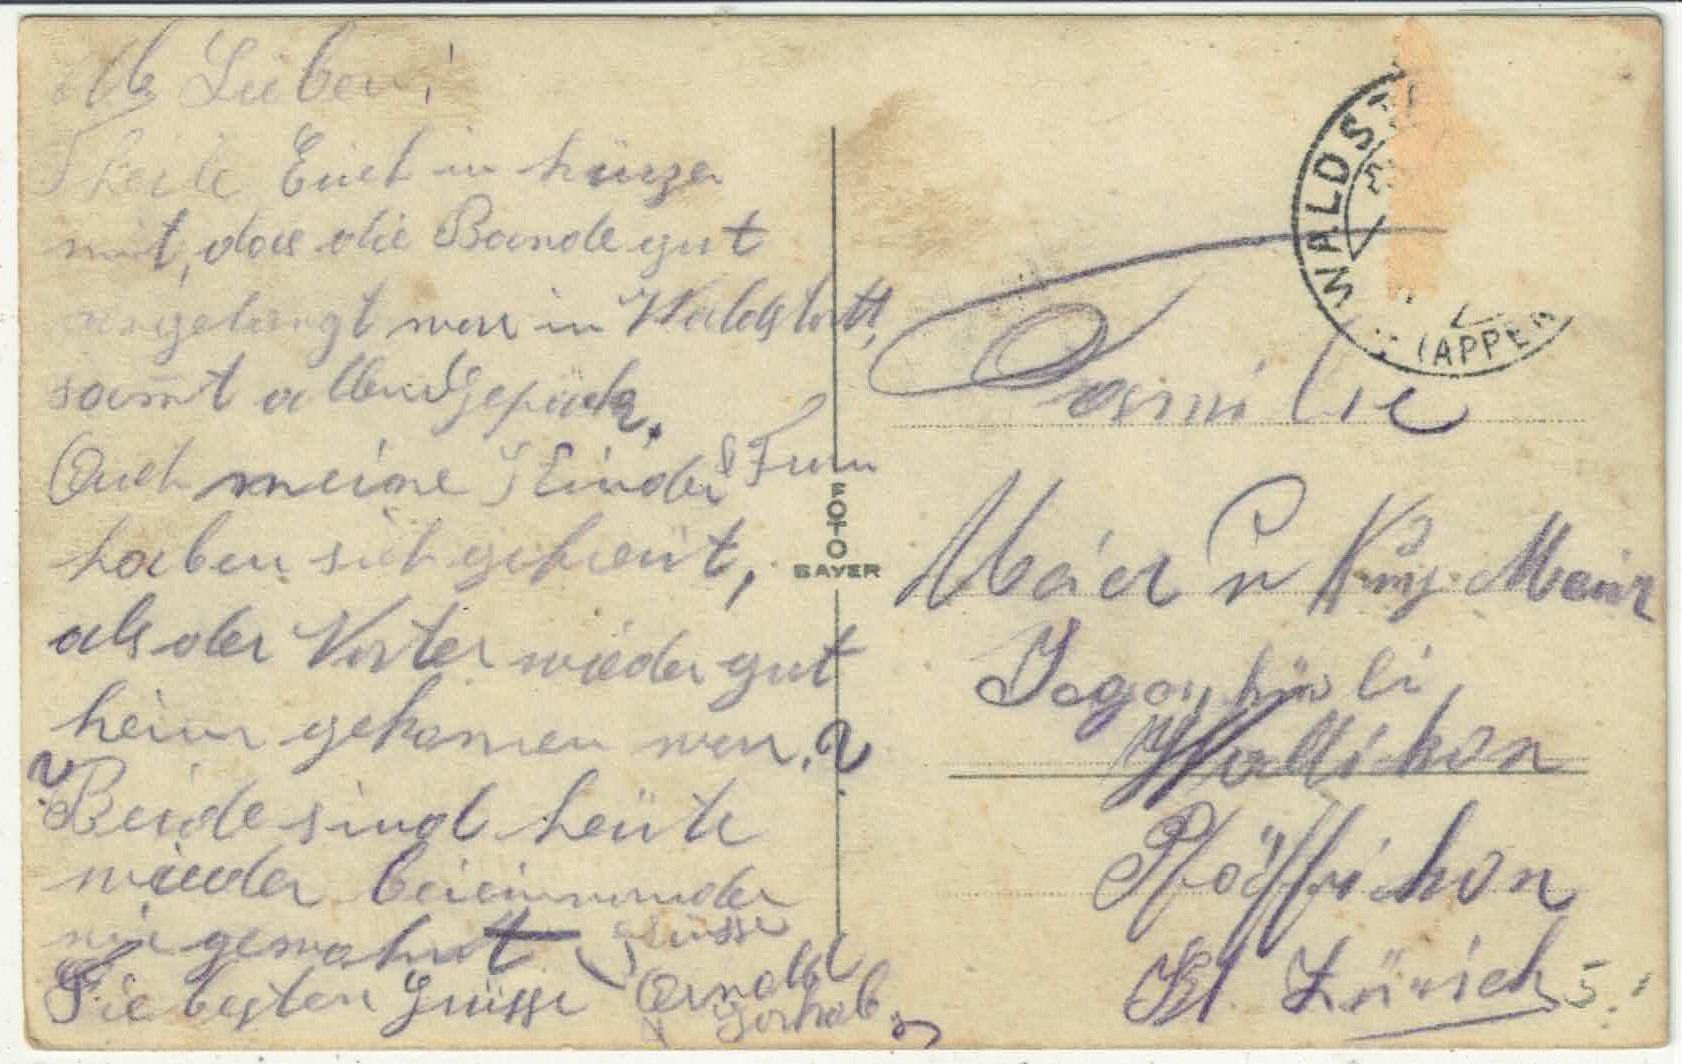 Alle Lieben!
Theile Euch in kürze
mit, das die Bande gut
angelangt war in Waldstatt,
samt allem Gepäck.
Auch meine 5 Kinder & Frau
haben sich gefreut,
als der Vater wieder gut
heim gekomen war.
Beide sind heute
wieder beieinander
wie gewohnt Grüsse
Die besten Grüsse Arnold
FOTO
BAYER
WALDST
(APPEN
Familie
Meier
Wallikon
Pfäffikon
Kt. Zürich